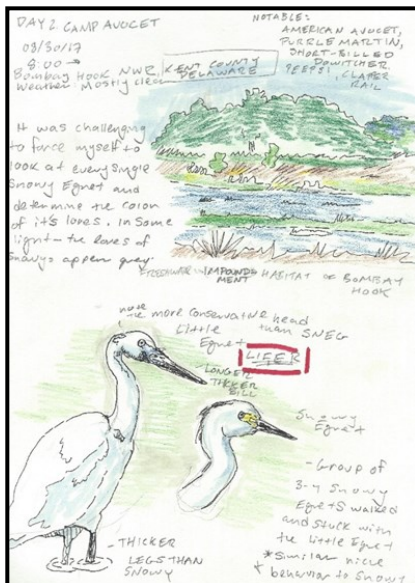 DAY 2. CAMP AVOCET
08/30/17
8:00 →
Bombay Hook NWR,
Weather: Mostly clear
KENT COUNTY
DELAWARE
NOTABLE:
AMERICAN AVOCET,
PURPLE MARTIN,
SHORT-BILLED
DOWITCHER,
PEEPS!, CLAPER
RAIL
It was challenging
to force myself to
look at every single
Snowy Egret and
determine the color
of it's lores. In some
light the lores of
Snowys appear grey
FRESHWATER IMPOUNDMENT HABITAT OF BOMBAY
HOOK
note
the more conservative head
than SNEG
Little
Egret
LIFER
LONGER
THICKER
BILL
Snowy
Egret
- Group of
3-4 Snowy
Egrets walked
and stuck with
the Little Egret
*Similar
& behavior to Snowy
- THICKER
LEGS THAN
SNOWY